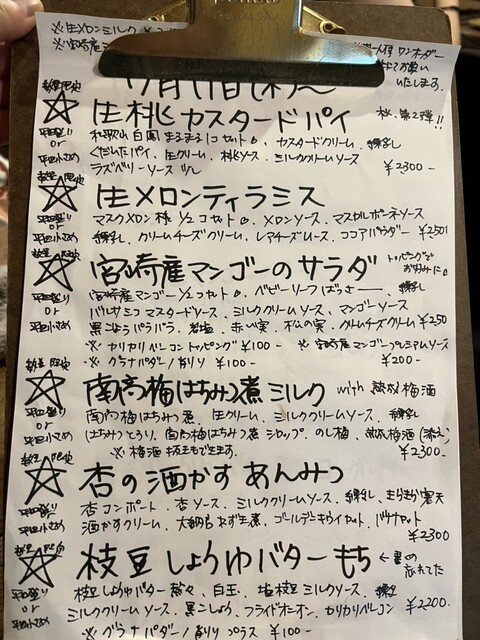 ※生メロンミルク
※宮崎産
ワンオーダー
お願い
いたします。
7月11日(木)〜
数量限定
平日盛り
or
平日小さめ
生桃カスタードパイ
桃、第2弾!!
和歌山白鳳まるまる1コセット。カスタードクリーム、練乳
くだいたパイ、生クリーム、桃ソース、ミルクリームソース
ラズベリーソース少し
¥2300-
数量限定
平日盛り
or
平日小さめ
生メロンティラミス
マスクメロン種1/2コセット。メロンソース、マスカルポーネソース
練乳、クリームチーズクリーム、レアチーズムース、ココアパウダー ¥250
数量限定
平日盛り
or
平日小さめ
宮崎産マンゴーのサラダ
トッピングを
お好みに。
宮崎産マンゴー1/2コセット。ベビーリーフばっさー、練乳
バルサミコマスタードソース、ミルクリームソース、マンゴーソース
黒こしょうパラパラ、岩塩、赤い実、松の実、クリームチーズクリーム ¥250
※カリカリベーコントッピング ¥100- ※宮崎産マンゴープレミアムソース
※グラナパダーノ削り ¥100- ¥200-
数量限定
平日盛り
or
平日小さめ
南高梅はちみつ煮ミルク with 熱放梅酒
南高梅はちみつ煮、生クリーム、ミルクリームソース、練乳
はちみつとうり、南高梅はちみつ煮シロップ、のし梅、梅酒(添え)
※梅酒抜きもできます。 ¥2300-
数量限定
平日盛り
or
平日小さめ
杏の酒かすあんみつ
杏コンポート、杏ソース、ミルクリームソース、練乳、寒天
酒かすクリーム、大納言あずき煮、ゴールデンキウイセット、バナナセット
¥2300
数量限定
平日盛り
or
平日小さめ
枝豆しょうゆバターもち
←星の
忘れてた
枝豆しょうゆバター、白玉、塩枝豆ミルクソース、練乳
ミルクリームソース、黒こしょう、フライドオニオン、カリカリベーコン ¥2200-
※グラナパダーノ削りプラス ¥100-